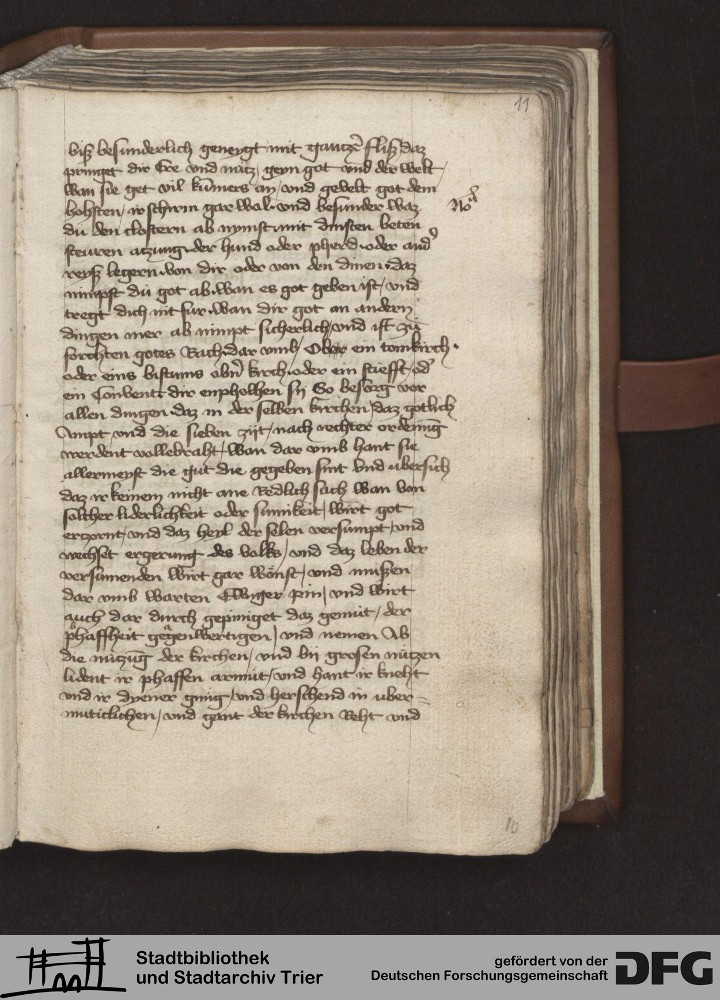 11
biß besunderlich geneygt mit gantzer fliß daz
pringet dir Ere vnd nutz, geyn got vnd der welt,
wan sie get vil kumers an, vnd gevelt got dem
hohsten, ir schirm gar wal. vnd besunder waz
No
du den clostern ab nymst, mit dinsten beten
steuren atzung. der hund oder pherd. oder and
reyß legern. von dir oder von den dinen. daz
nimpst du got ab. wan es got geben ist, vnd
tregt dich nit fur. wan dir got an andern
dingen mer ab nimpt sicherlich, vnd ist zu
forchten gotes Rach. dar vmb, Obe ein tomkirch.
oder eins bistums kirch. oder ein stiefft, od
ein Convent dir enpholhen sij So besorg vor
allen dingen. daz in der selben kirchen, daz gotlich
Ampt vnd die sieben zijt, nach rechter ordenug
werdent vollebraht, Wan dar vmb hant sie
allermeyst die gut die gegeben sint Vnd vbersich
daz ir keinem nicht ane Redlich sach Wan von
solicher liderlichkeit oder sumikeit, wirt got
erzornt, vnd daz heyl der selen versumpt, vnd
wechset ergerung des volks, vnd daz leben der
versumenden wirt gar wonst, vnd mußen
dar vmb warten Ewiger pin, vnd wirt
auch dar durch gepiniget daz gemut, der
phaffheit gegenwertigen, vnd nemen Ab
die nutzug der kirchen, vnd bij grosen nutzen
lident ir phaffen armut, vnd hant ir kneht
vnd ir dyener gnug, vnd herschend in vber-
muticlichen, vnd gant der kirchen Reht vnd
10
Stadtbibliothek
und Stadtarchiv Trier
gefördert von der
Deutschen Forschungsgemeinschaft
DFG